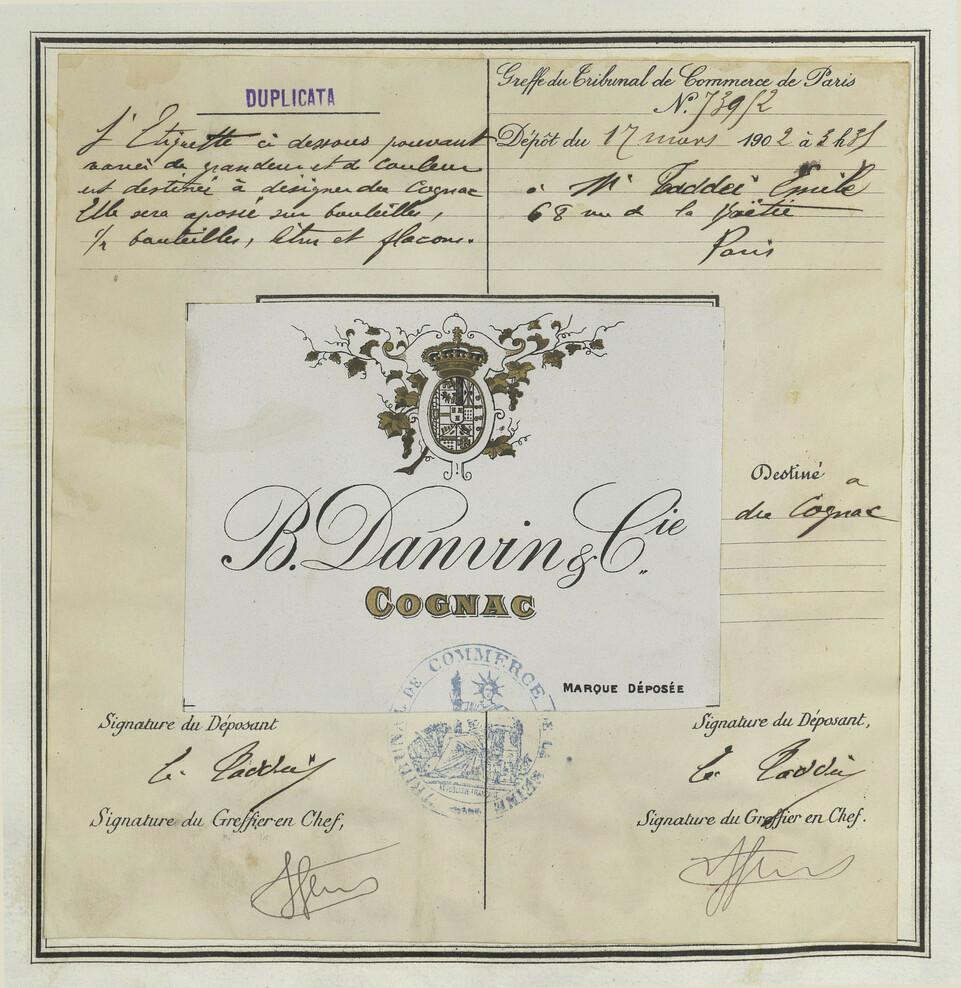 DUPLICATA
L'Etiquette ci dessous pouvant
varier de grandeur et de couleur
est destinée à désigner du Cognac
Elle sera aposée sur bouteilles,
1/2 bouteilles, litres et flacons.
Greffe du Tribunal de Commerce de Paris
N°. 73952
Dépôt du 17 mars 1902 à 3 h 35
à Mr Taddei Emile
68 rue de la Boëtie
Paris
B. Danvin & Cie
COGNAC
MARQUE DÉPOSÉE
Destiné à
du Cognac
TRIBUNAL DE COMMERCE DE LA SEINE
RÉPUBLIQUE FRANÇAISE
Signature du Déposant
E. Taddei
Signature du Greffier en Chef,
Signature du Déposant,
E. Taddei
Signature du Greffier en Chef.